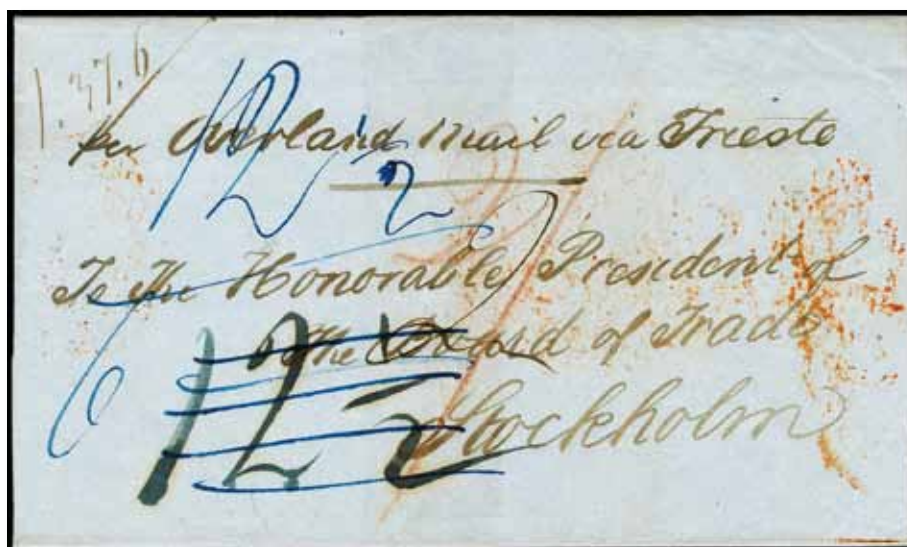 1.37.6
per Overland Mail via Trieste
To The Honorable President of
The Board of Trade
Stockholm